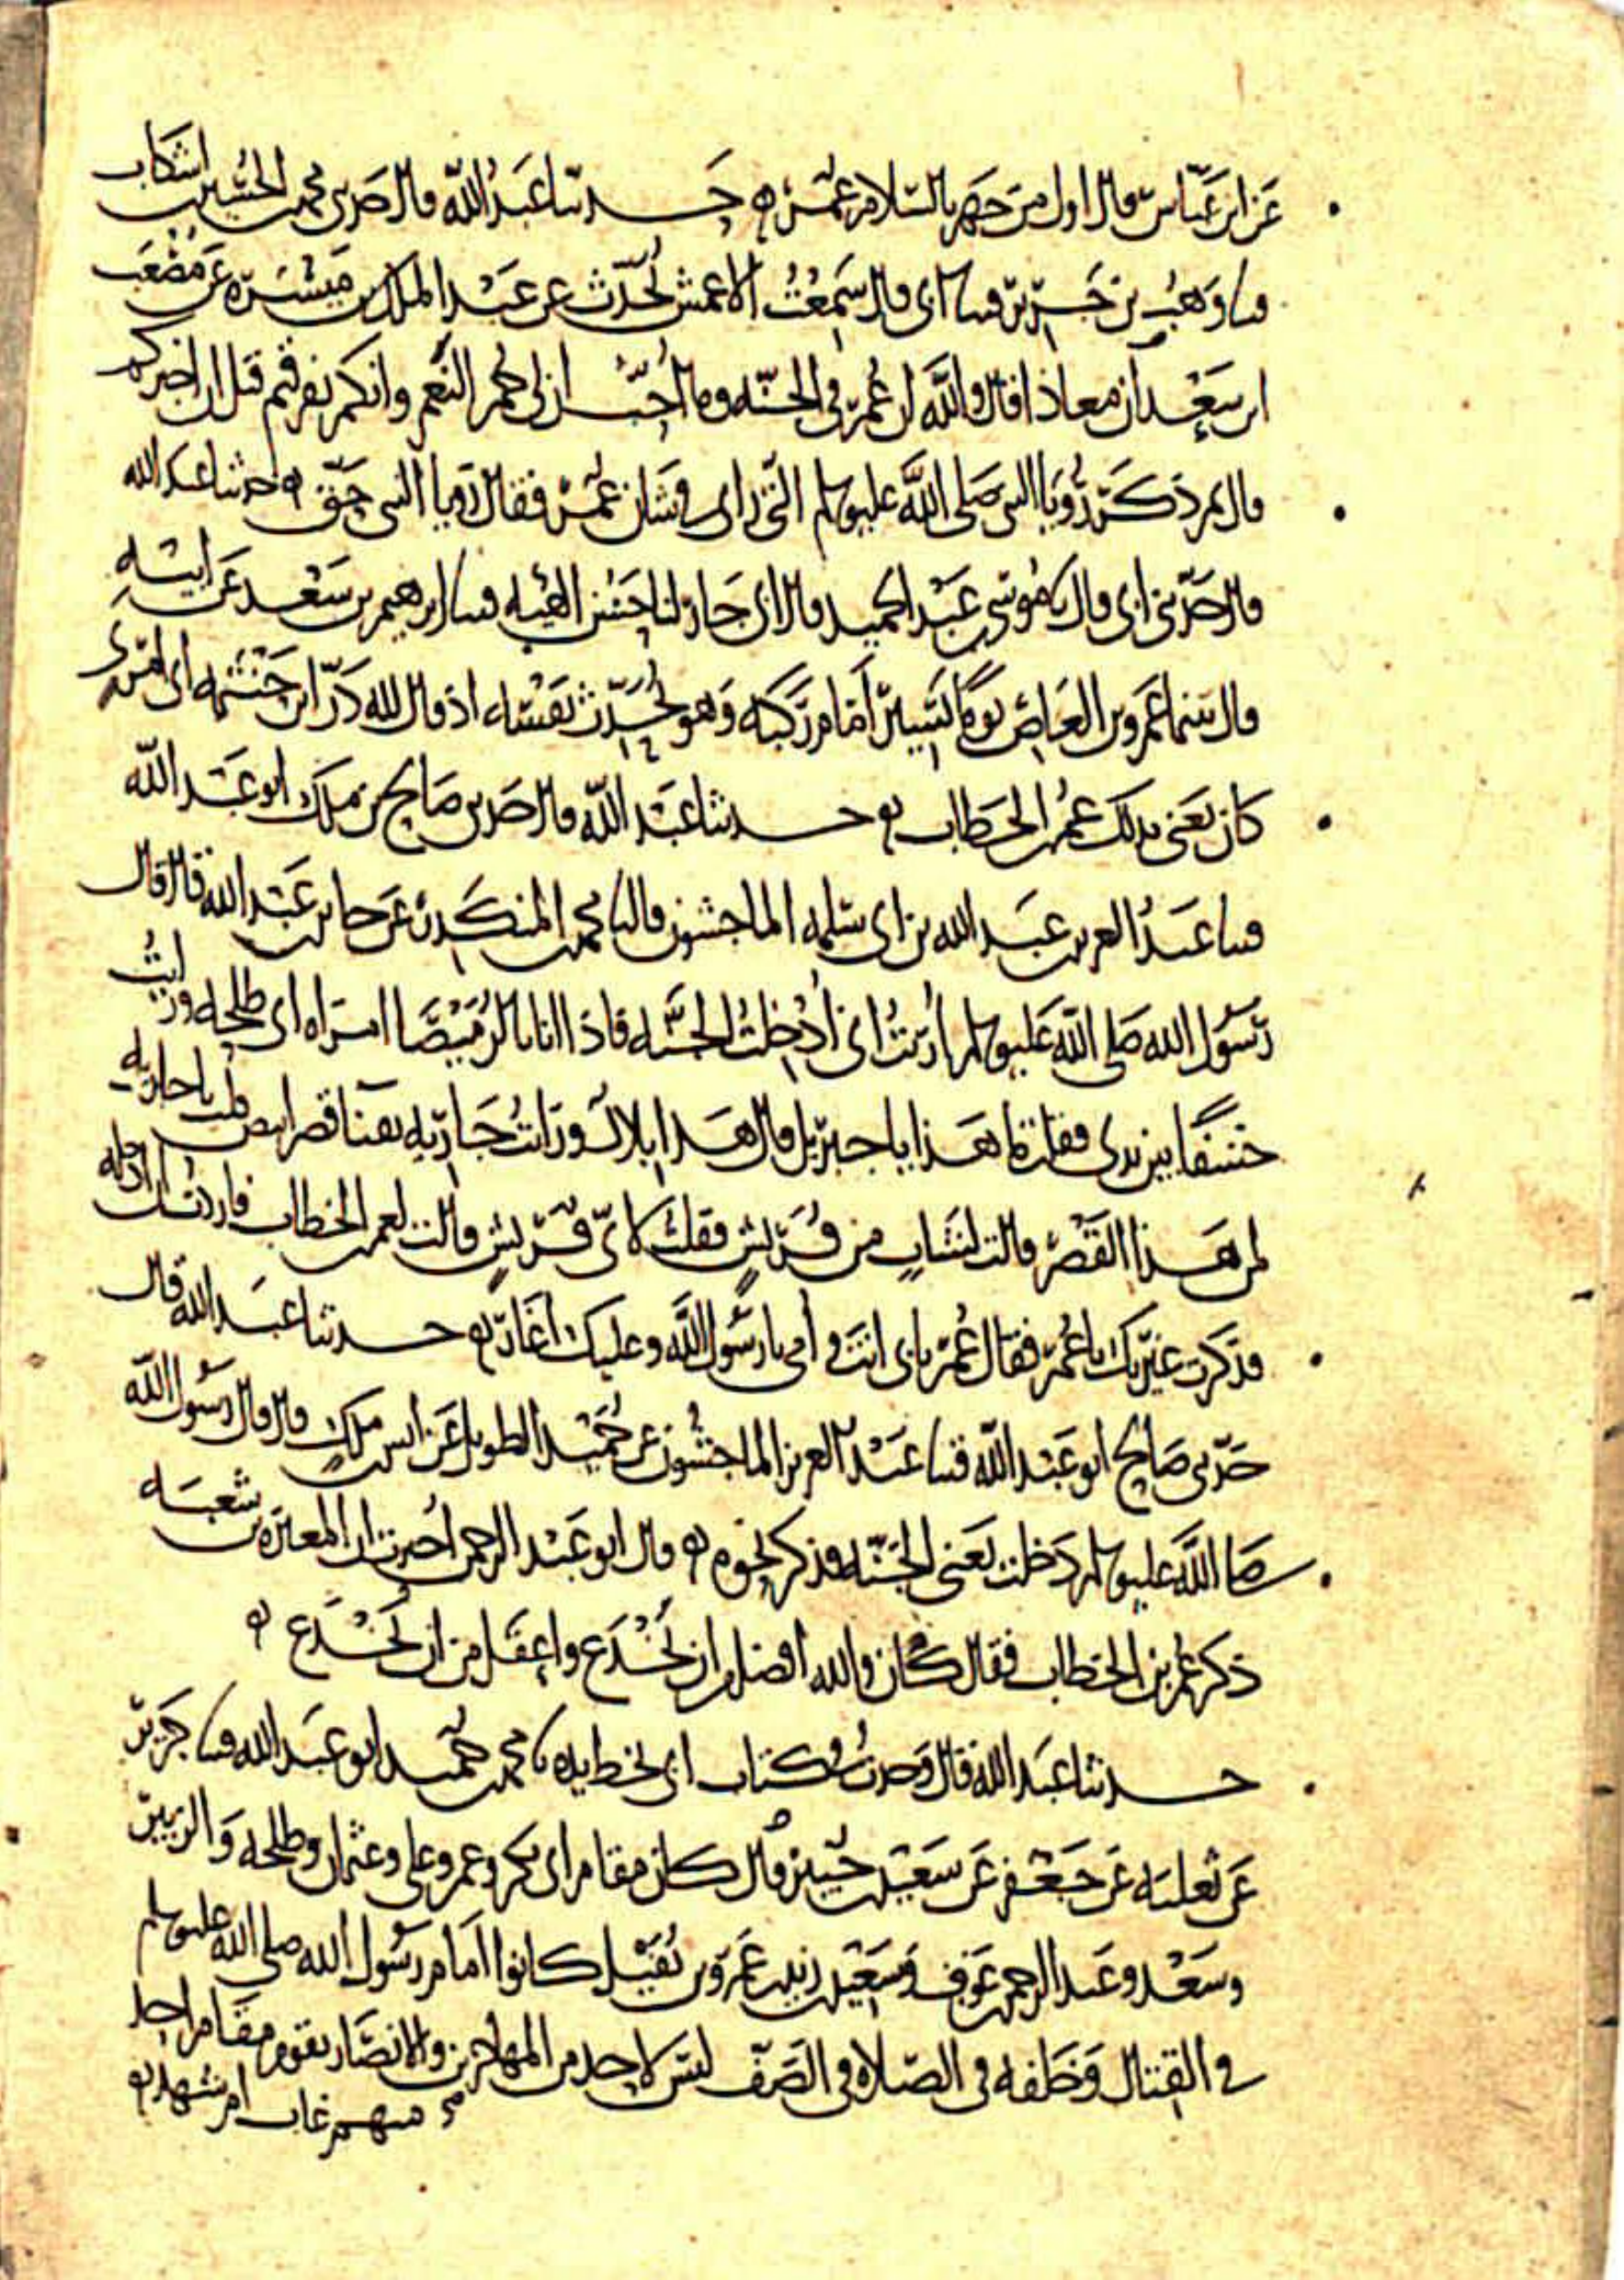 عن ابن عباس قال اول من جهر بالسلام عمر ه حدثنا عبد الله قال حدثني محمد بن الحسين بن اشكاب
قثنا وهب بن جرير قثنا ابي قال سمعت الاعمش يحدث عن عبد الملك بن ميسرة عن مصعب
ابن سعد ان معاذا قال والله ان عمر في الجنه وما احب ان لي حمر النعم وانكم تفرقتم قبل ان اخبركم
قال ثم ذكر رؤيا النبي صلى الله عليه وسلم التي راى في شان عمر فقال رويا النبي حق ه حدثنا عبد الله
قال حدثني ابي قال نا موسى بن عبد الحميد قال ابي جار لنا حسن الهيئه قثنا ابرهيم بن سعد عن ابيه
قال بينما عمرو بن العاص يوما يسير امام ركبه وهو يحدث نفسه اذ قال لله در ابن حنتمه اي امرئ
كان يعني بذلك عمر بن الخطاب ه حدثنا عبد الله قال حدثني صالح بن ملك ابو عبد الله
قثنا عبد العزيز بن عبد الله بن ابي سلمه الماجشون قال نا محمد بن المنكدر عن جابر بن عبد الله قال قال
رسول الله صلى الله عليه وسلم اريت اني ادخلت الجنه فاذا انا بالرميصا امراه ابي طلحه ورايت
خشفا بين يدي فقلت ما هذا يا جبريل قال هذا بلال ورايت جاريه بفنا قصر ابيض قلت يا جاريه
لمن هذا القصر قالت لشاب من قريش فقلت لاي قريش قالت لعمر بن الخطاب فاردت ان ادخله
فذكرت غيرتك يا عمر فقال عمر بابي انت وامي يا رسول الله وعليك اغار ه حدثنا عبد الله قال
حدثني صالح ابو عبد الله قثنا عبد العزيز الماجشون عن حميد الطويل عن انس بن ملك قال قال رسول الله
صلى الله عليه وسلم دخلت يعني الجنه فذكر نحوه ه قال ابو عبد الرحمن اخبرت ان المغيره بن شعبه
ذكر عمر بن الخطاب فقال كان والله افضل من ان يخدع واعقل من ان يخدع ه
حدثنا عبد الله قال وجدت في كتاب ابي بخط يده نا محمد بن حميد ابو عبد الله قثنا جرير
عن ثعلبه عن جعفر عن سعيد بن جبير قال كان مقام ابي بكر وعمر وعلي وعثمان وطلحه والزبير
وسعد وعبد الرحمن بن عوف وسعيد بن زيد بن عمرو بن نفيل كانوا امام رسول الله صلى الله عليه وسلم
في القتال وخلفه في الصلاه في الصف ليس لاحد من المهاجرين والانصار يقوم مقام احد
منهم غاب ام شهد ه